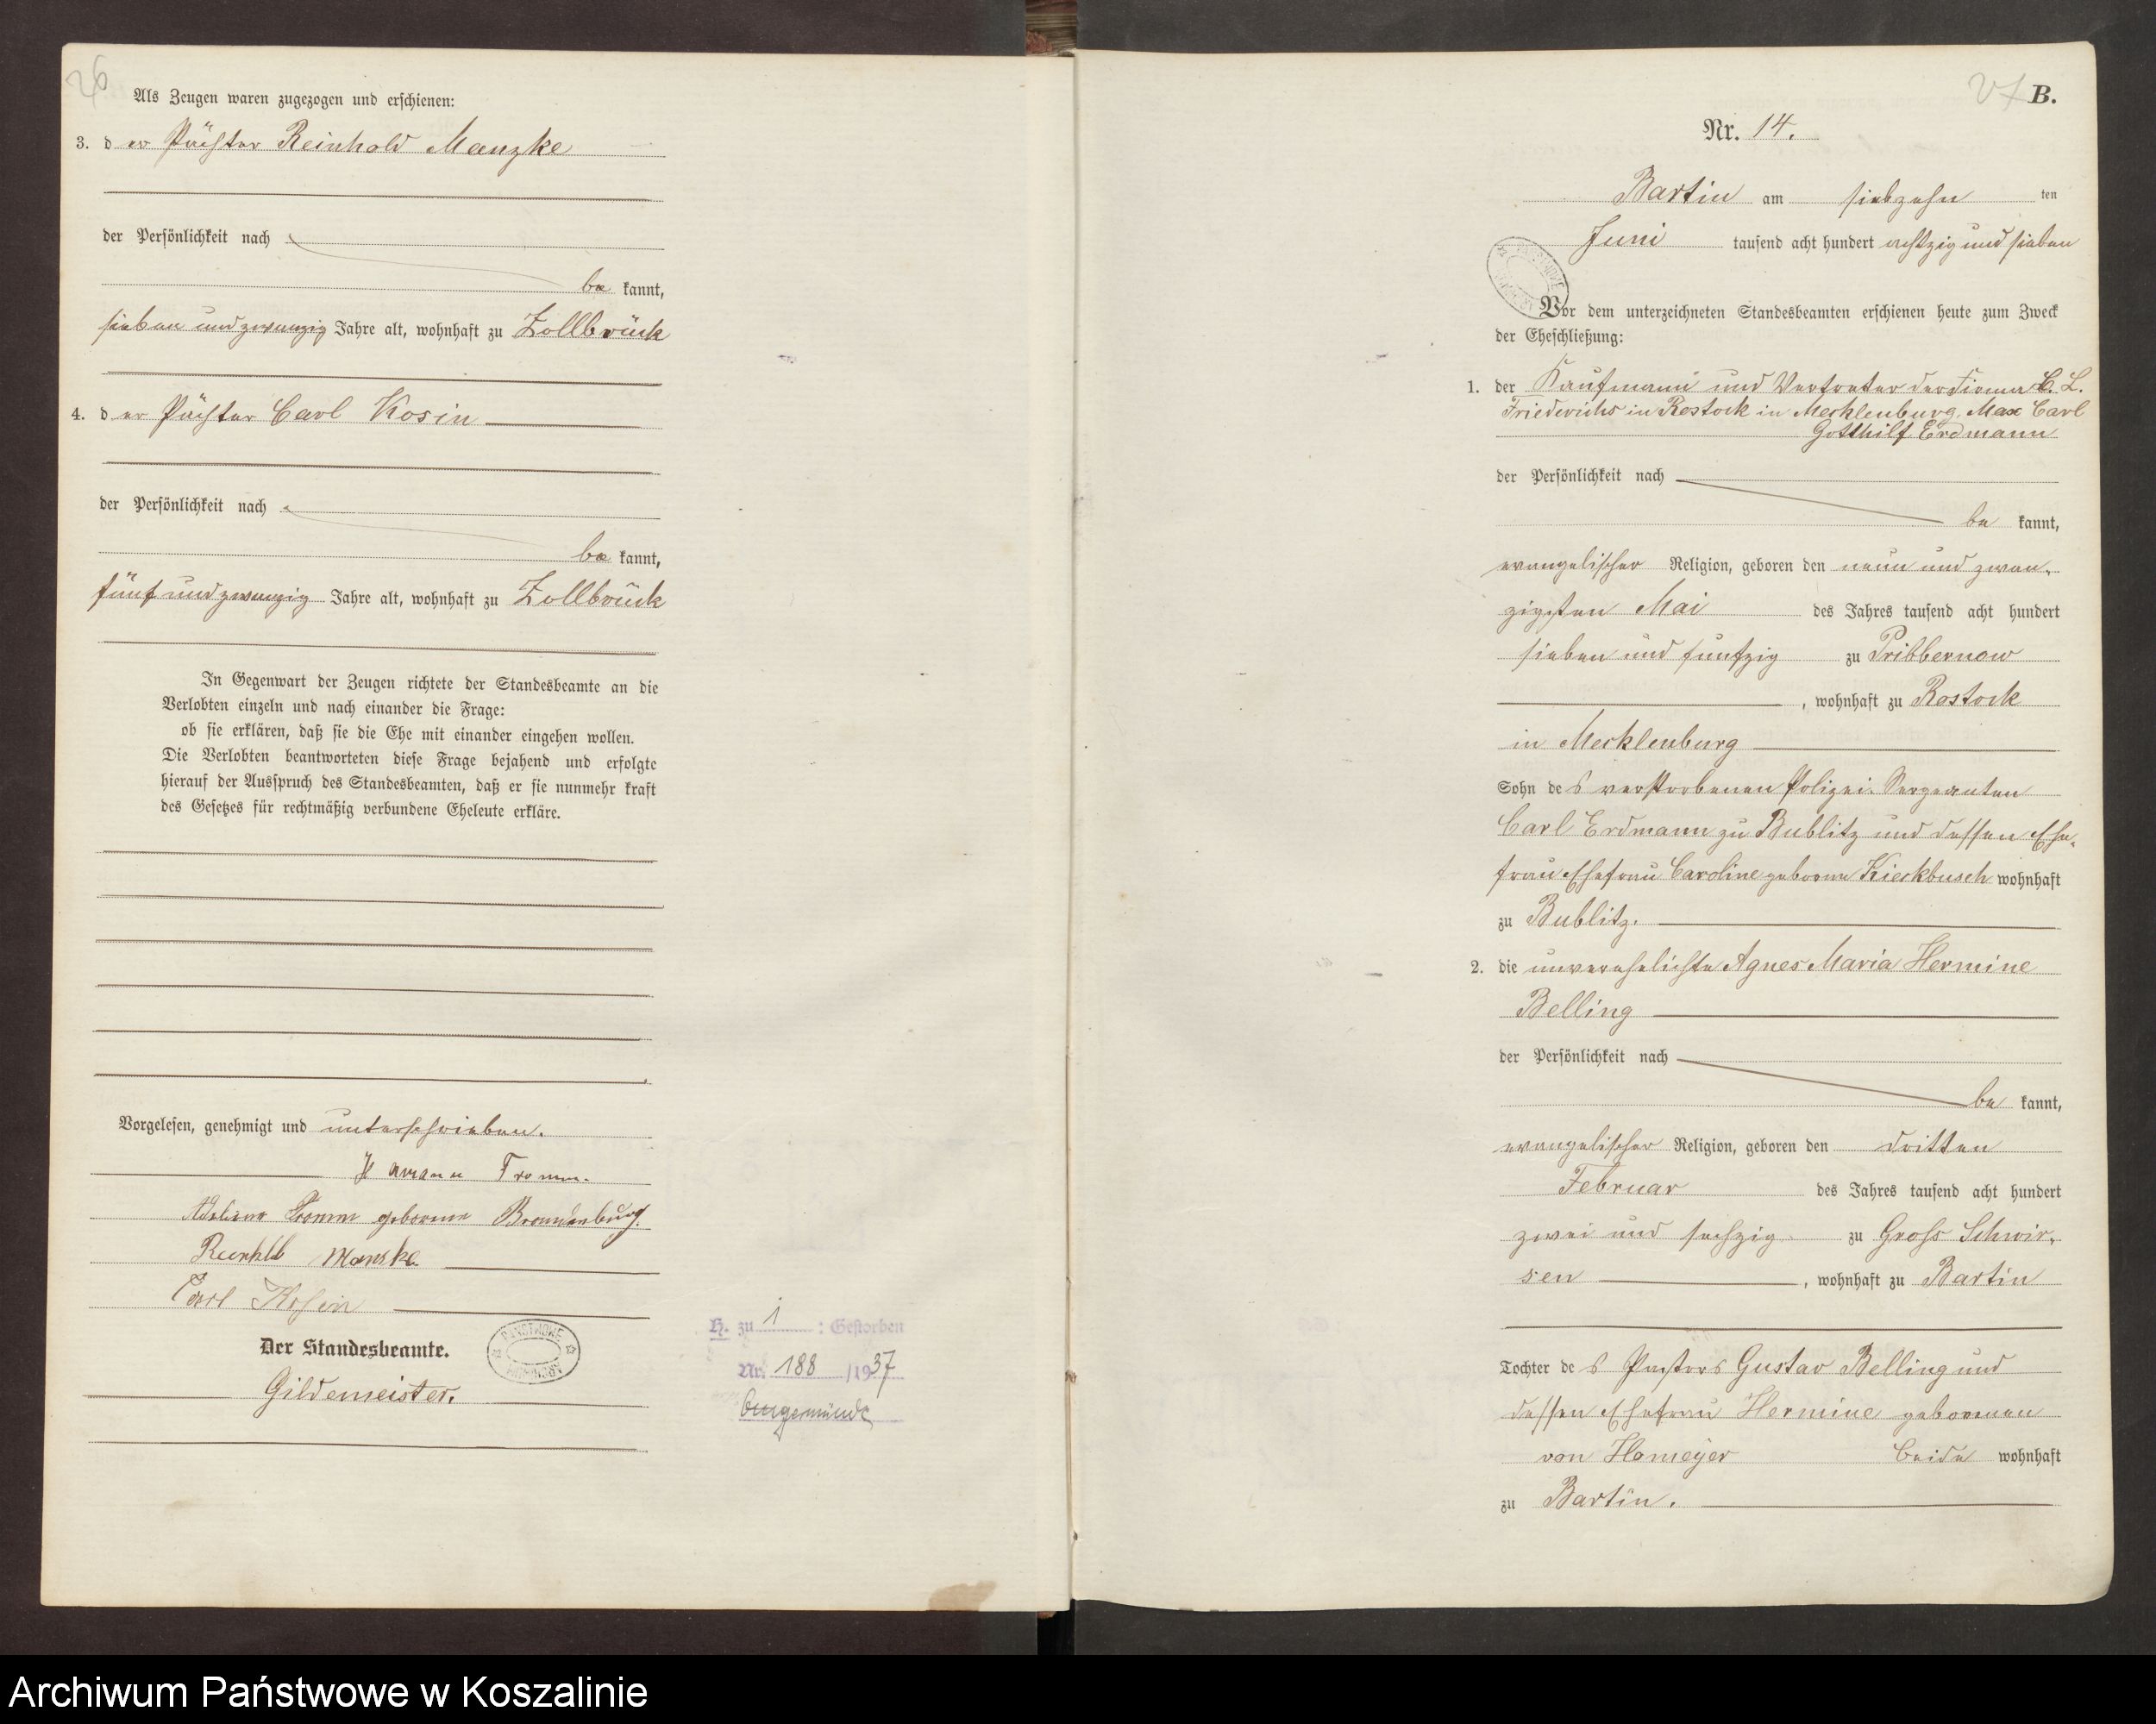 26
Als Zeugen waren zugezogen und erschienen:
3. der Pächter Reinhold Manzke
der Persönlichkeit nach
be kannt,
sieben und zwanzig Jahre alt, wohnhaft zu Zollbrück
4. der Pächter Carl Kosin
der Persönlichkeit nach
be kannt,
fünf und zwanzig Jahre alt, wohnhaft zu Zollbrück
In Gegenwart der Zeugen richtete der Standesbeamte an die
Verlobten einzeln und nach einander die Frage:
ob sie erklären, daß sie die Ehe mit einander eingehen wollen.
Die Verlobten beantworteten diese Frage bejahend und erfolgte
hierauf der Ausspruch des Standesbeamten, daß er sie nunmehr kraft
des Gesetzes für rechtmäßig verbundene Eheleute erkläre.
Vorgelesen, genehmigt und unterschrieben.
Hermann Fromm.
Fromm geborene Brandenburg.
Manske
Carl Kosin
Der Standesbeamte.
Gildemeister.
PAŃSTWOWE
H. zu 1 : Gestorben
Nr. 188 /1937
27 B.
Nr. 14.
Bartin am siebzehn ten
Juni tausend acht hundert achtzig und sieben
Vor dem unterzeichneten Standesbeamten erschienen heute zum Zweck
der Eheschließung:
1. der Kaufmann und Vertreter der Firma C. L.
Friederichs in Rostock in Mecklenburg, Max Carl
Gotthilf Erdmann
der Persönlichkeit nach
be kannt,
evangelischer Religion, geboren den neun und zwan-
zigsten Mai des Jahres tausend acht hundert
sieben und fünfzig zu Pribbernow
, wohnhaft zu Rostock
in Mecklenburg
Sohn des verstorbenen Polizei-Sergeanten
Carl Erdmann zu Bublitz und dessen Ehe-
frau Ehefrau Caroline geborene Kieckbusch wohnhaft
zu Bublitz.
2. die unverehelichte Agnes Maria Hermine
Belling
der Persönlichkeit nach
be kannt,
evangelischer Religion, geboren den dritten
Februar des Jahres tausend acht hundert
zwei und sechzig zu Gross Schwir-
sen , wohnhaft zu Bartin
Tochter des Pastors Gustav Belling und
dessen Ehefrau Hermine geborenen
von Homeyer beide wohnhaft
zu Bartin.
Archiwum Państwowe w Koszalinie